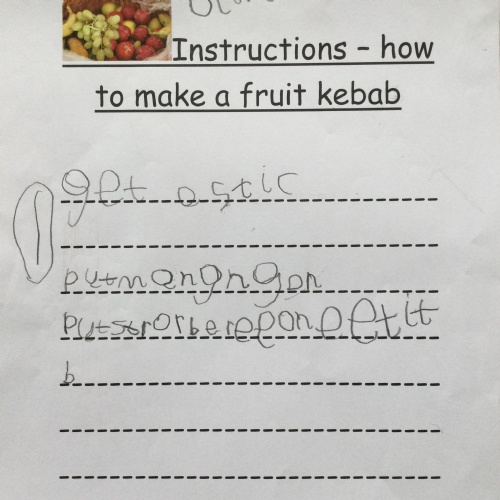 Instructions – how
to make a fruit kebab
1 get a stic
putmangngon
putstrorbereponeetit
b